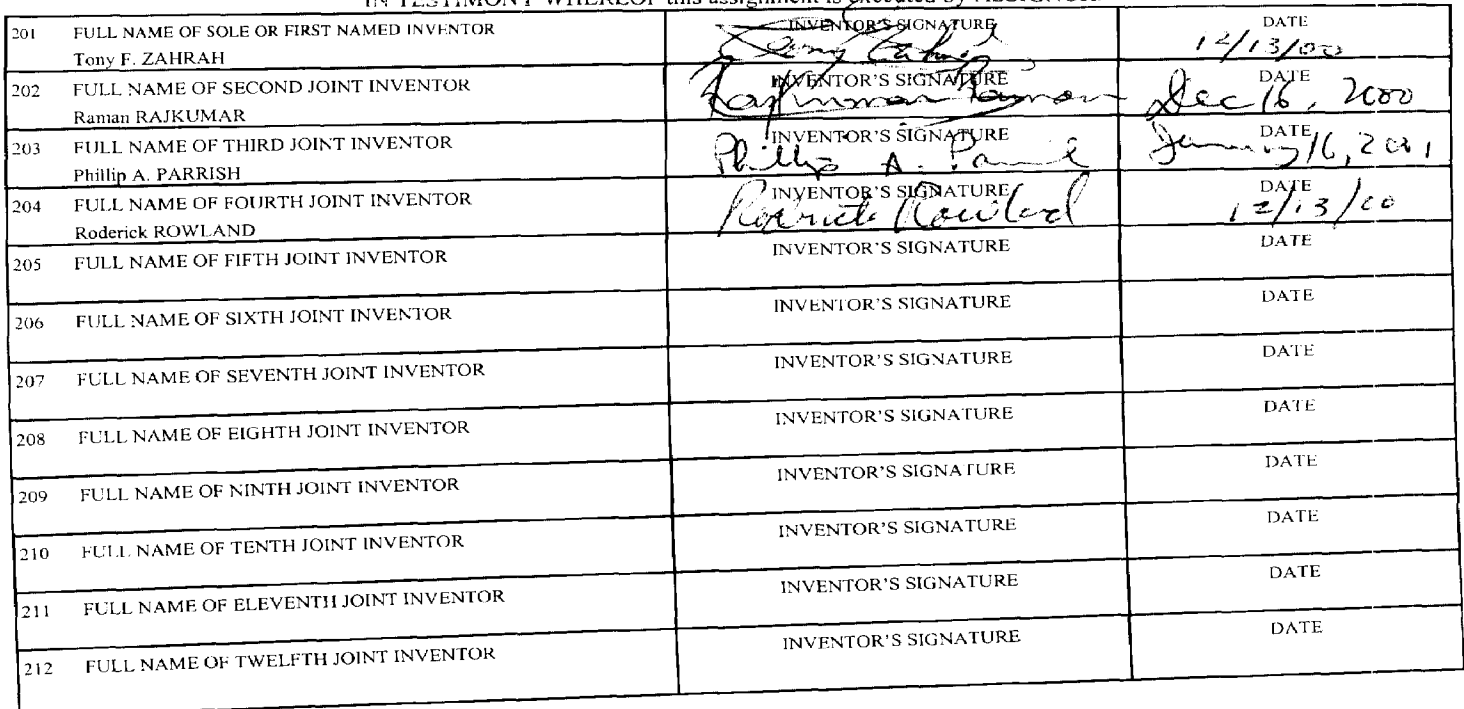 IN TESTIMONY WHEREOF this assignment is executed by
201 FULL NAME OF SOLE OR FIRST NAMED INVENTOR INVENTOR'S SIGNATURE DATE
Tony F. ZAHRAH Tony Zahrah 12/13/00
202 FULL NAME OF SECOND JOINT INVENTOR INVENTOR'S SIGNATURE DATE
Raman RAJKUMAR Rajkumar Raman Dec 16, 2000
203 FULL NAME OF THIRD JOINT INVENTOR INVENTOR'S SIGNATURE DATE
Phillip A. PARRISH Phillip A. Parrish January 16, 2001
204 FULL NAME OF FOURTH JOINT INVENTOR INVENTOR'S SIGNATURE DATE
Roderick ROWLAND Roderick Rowland 12/13/00
205 FULL NAME OF FIFTH JOINT INVENTOR INVENTOR'S SIGNATURE DATE
206 FULL NAME OF SIXTH JOINT INVENTOR INVENTOR'S SIGNATURE DATE
207 FULL NAME OF SEVENTH JOINT INVENTOR INVENTOR'S SIGNATURE DATE
208 FULL NAME OF EIGHTH JOINT INVENTOR INVENTOR'S SIGNATURE DATE
209 FULL NAME OF NINTH JOINT INVENTOR INVENTOR'S SIGNATURE DATE
210 FULL NAME OF TENTH JOINT INVENTOR INVENTOR'S SIGNATURE DATE
211 FULL NAME OF ELEVENTH JOINT INVENTOR INVENTOR'S SIGNATURE DATE
212 FULL NAME OF TWELFTH JOINT INVENTOR INVENTOR'S SIGNATURE DATE